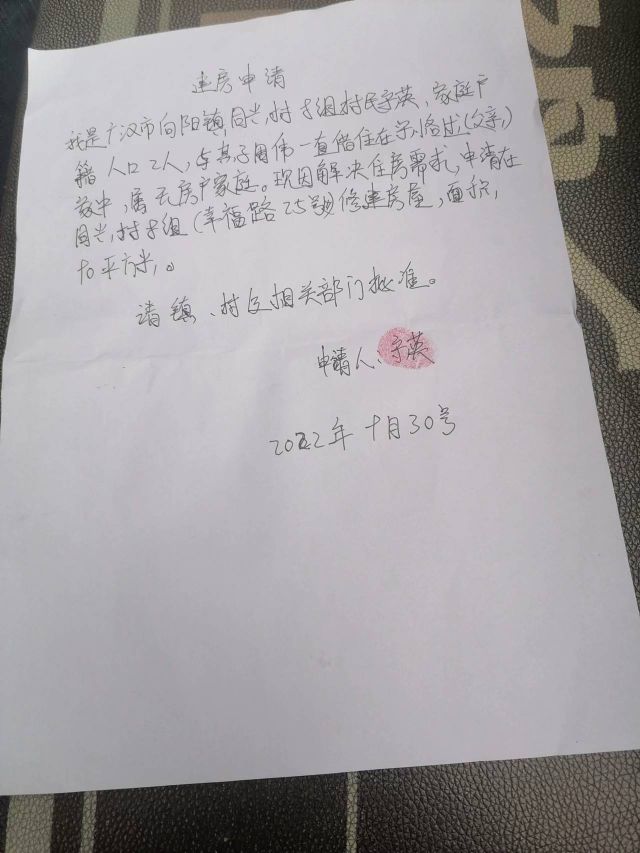 建房申请
我是广汉市向阳镇同兴村8组村民字英，家庭户
籍人口2人，与其子周伟一直借住在洛成（父亲）
家中，属无房户家庭。现因解决住房需求，申请在
同兴村8组（幸福路25号）修建房屋，面积，
70平方米。
请镇、村及相关部门批准。
申请人：字英
2022年十月30号